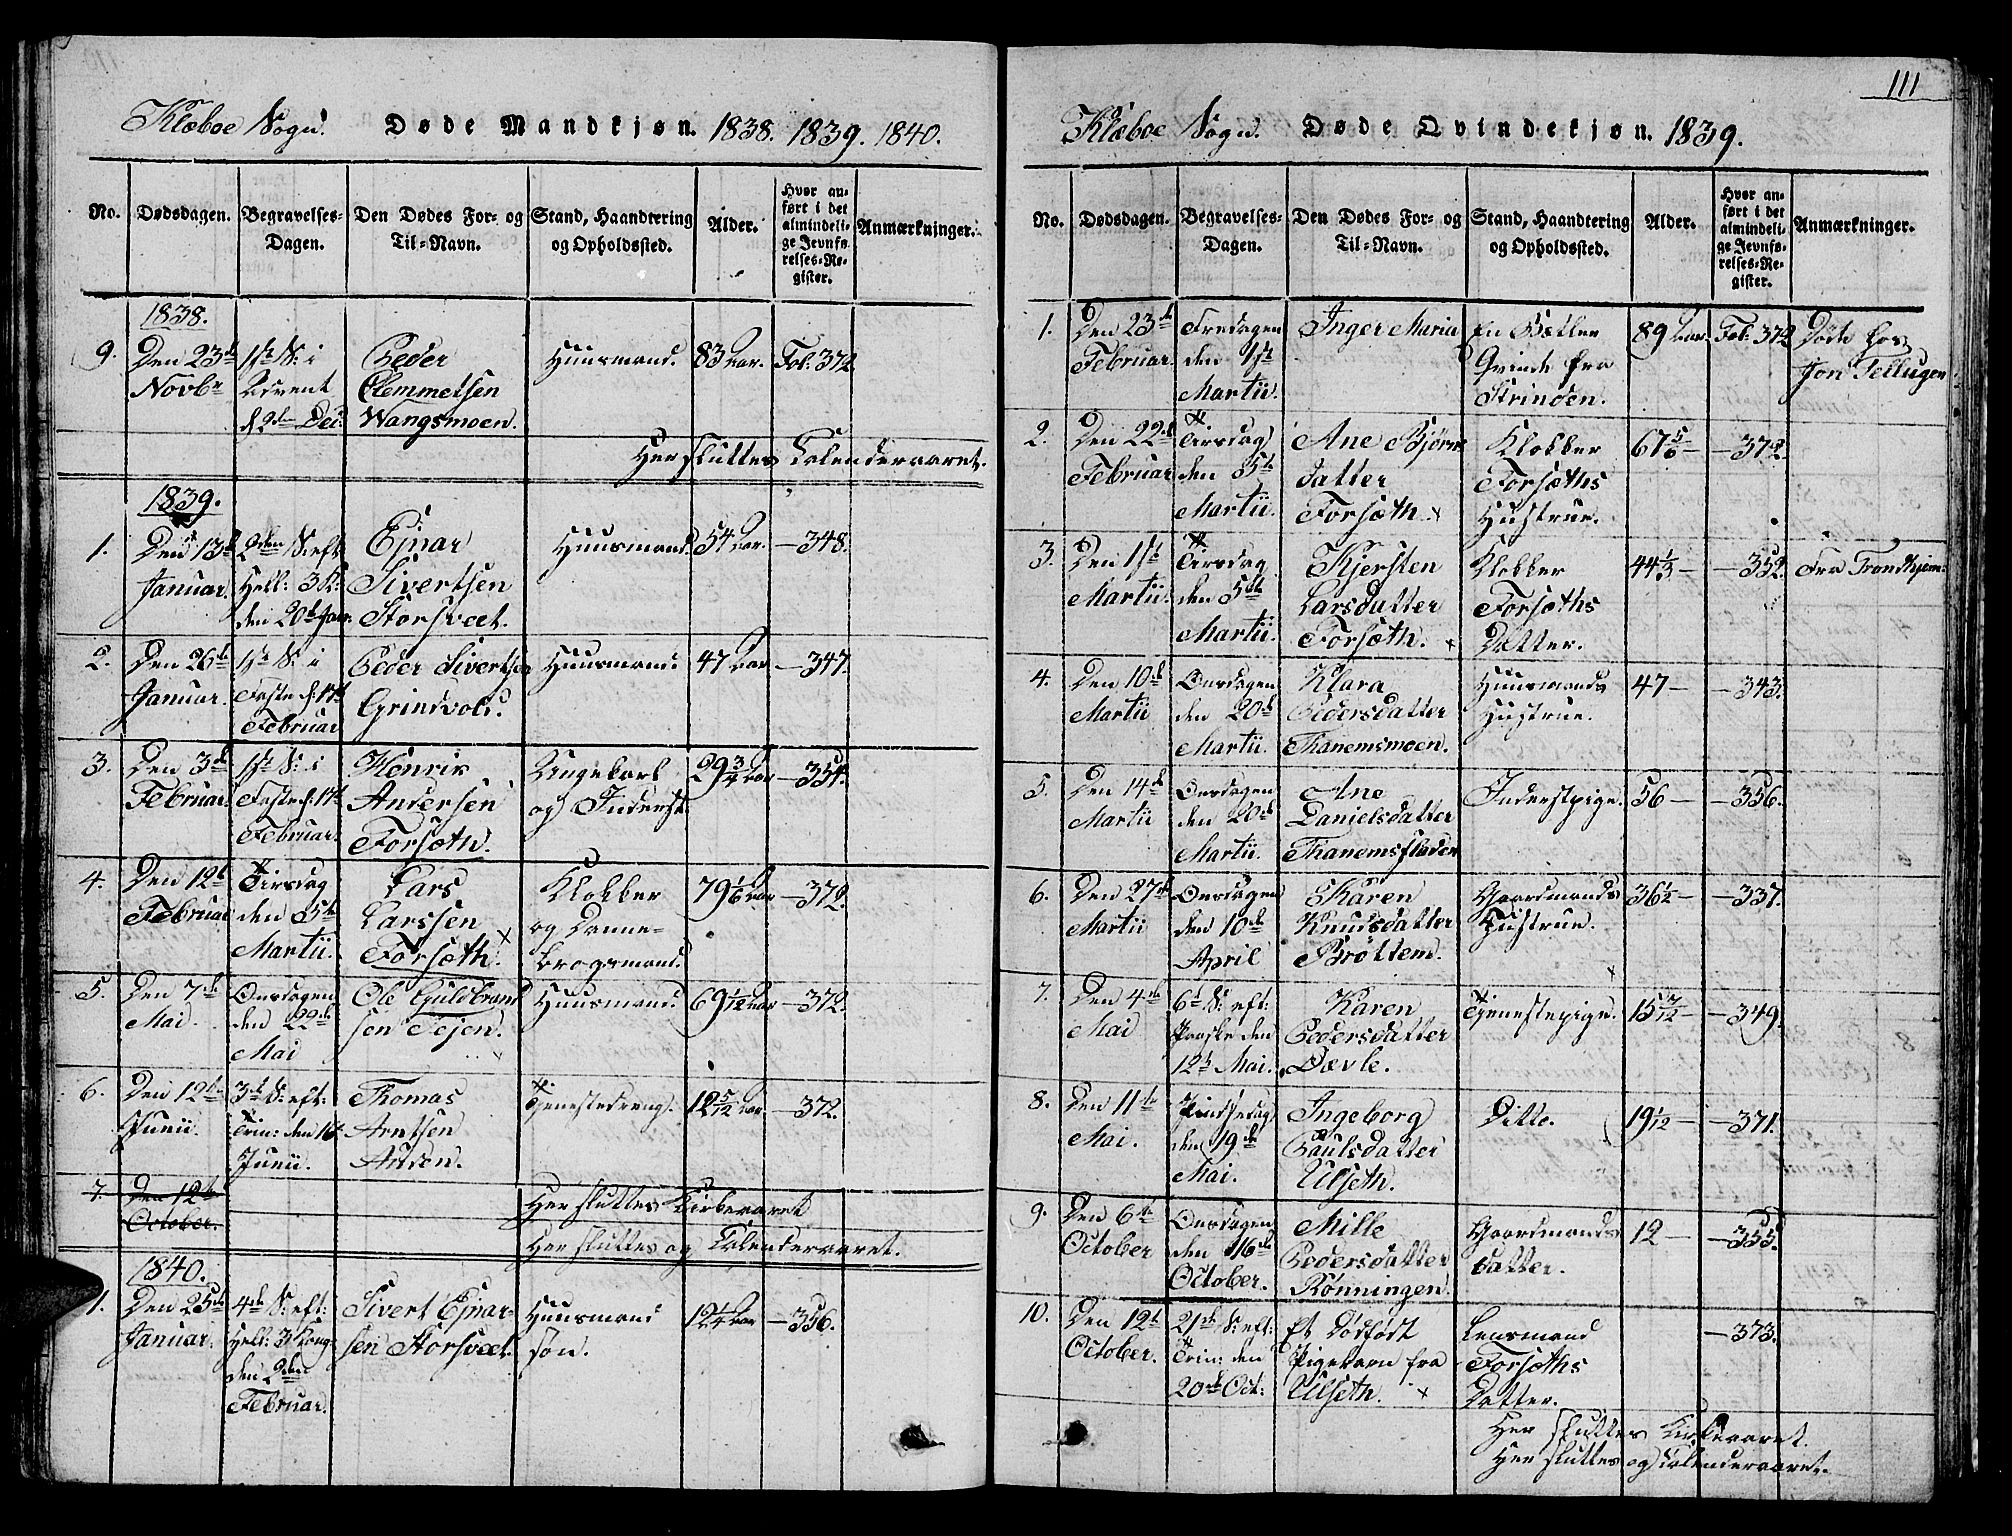 111
Klæboe Sogn. Døde Mandkjøn. 1838. 1839. 1840.
No. Dødsdagen. Begravelses-Dagen. Den Dødes For- og Til-Navn. Stand, Haandtering og Opholdssted. Alder. Hvor anført i det almindelige Jevnførelses-Register. Anmærkninger.
1838.
9. Den 23de Novbr 1ste S: i Advent d. 2den Dec: Peder Clemmetsen Wangsmoen. Huusmand. 83 Aar. Fol: 372.
Her sluttes Kalenderaaret.
1839.
1. Den 13de Januar. 2den S: eft: Hell: 3 K: den 20de Janr. Ejnar Sivertsen Storsvet. Huusmand. 54 Aar. — 348.
2. Den 26de Januar. 1ste S: i Faste d: 17de Februar Peder Sivertsen Grindvold. Huusmand. 47 Aar — 347.
3. Den 3de Februar. 1ste S: i Faste d: 17de Februar. Henrik Andersen Forsæth. Ungekarl og Inderst. 29 3/4 Aar — 354.
4. Den 12te Februar Tirsdag den 5te Martii. Lars Larssen Forsæth. x Klokker og Dannebrogsmand. 79 1/6 Aar — 372.
5. Den 7de Mai. Onsdagen den 22de Mai Ole Guldbrandsen Tejen. Huusmand. 69 1/12 Aar — 372.
6. Den 12te Junii. 3de S: eft: Trin: den 16de Junii. Thomas Arntsen Ausen. Tjenestedreng. 12 5/12 Aar. — 372.
7. Den 12te October.
Her sluttes Kirkeaaret
Her sluttes og Kalenderaaret.
1840.
1. Den 25de Januar. 4de S: eft: Hell: 3 Kong: den 2den Februar. Sivert Ejnarsen Storsvet. Huusmand søn. 12 1/4 Aar — 356.
Klæboe Sogn. Døde Qvindekjøn. 1839.
No. Dødsdagen. Begravelses-Dagen. Den Dødes For- og Til-Navn. Stand, Haandtering og Opholdssted. Alder. Hvor anført i det almindelige Jevnførelses-Register. Anmærkninger.
1. Den 23de Februar. Fredagen den 1ste Martii. Inger Maria En Betler Qvinde fra Strinden. 89 Aar. Fol: 372 Døde hos Jon Tellugen
2. Den 22de Februar Tirsdag den 5te Martii. Ane Bjørnsdatter Forsæth. x Klokker Forsæths Hustrue. 67 5/6 — — 372.
3. Den 1ste Martii. Tirsdag den 5te Martii. Kjersten Larsdatter Forsæth. x Klokker Forsæths Datter. 44 1/3 — — 352. Fra Trondhjem.
4. Den 10de Martii Onsdagen den 20de Martii. Klara Pedersdatter Thanemsmoen. Huusmands Hustrue. 47 — — 343.
5. Den 14de Martii Onsdagen den 20de Martii. Ane Danielsdatter Thanemsfladen Inderstpige. 56 — — 356.
6. Den 27de Martii Onsdagen den 10de April Karen Knudsdatter Brøttem. Gaardmands Hustrue. 36 1/2 — — 337.
7. Den 4de Mai 6te S: eft: Paaske den 12te Mai. Karen Pedersdatter Dævle. Tjenestepige. 15 7/12 — — 349.
8. Den 11te Mai. Pindsedag den 19de Mai. Ingeborg Paulsdatter Ulseth. Ditto. 19 1/12 — — 371.
9. Den 6te October Onsdagen den 16de October. Mille Pedersdatter Rønningen. Gaardmands datter. 12 — — 355.
10. Den 12te October. 21de S: eft: Trin: den 20de Oct: Et Dødfødt Pigebarn fra Ulseth. x Lensmand Forsæths Datter. — 373.
Her sluttes Kirkeaaret.
Her sluttes og Kalenderaaret.